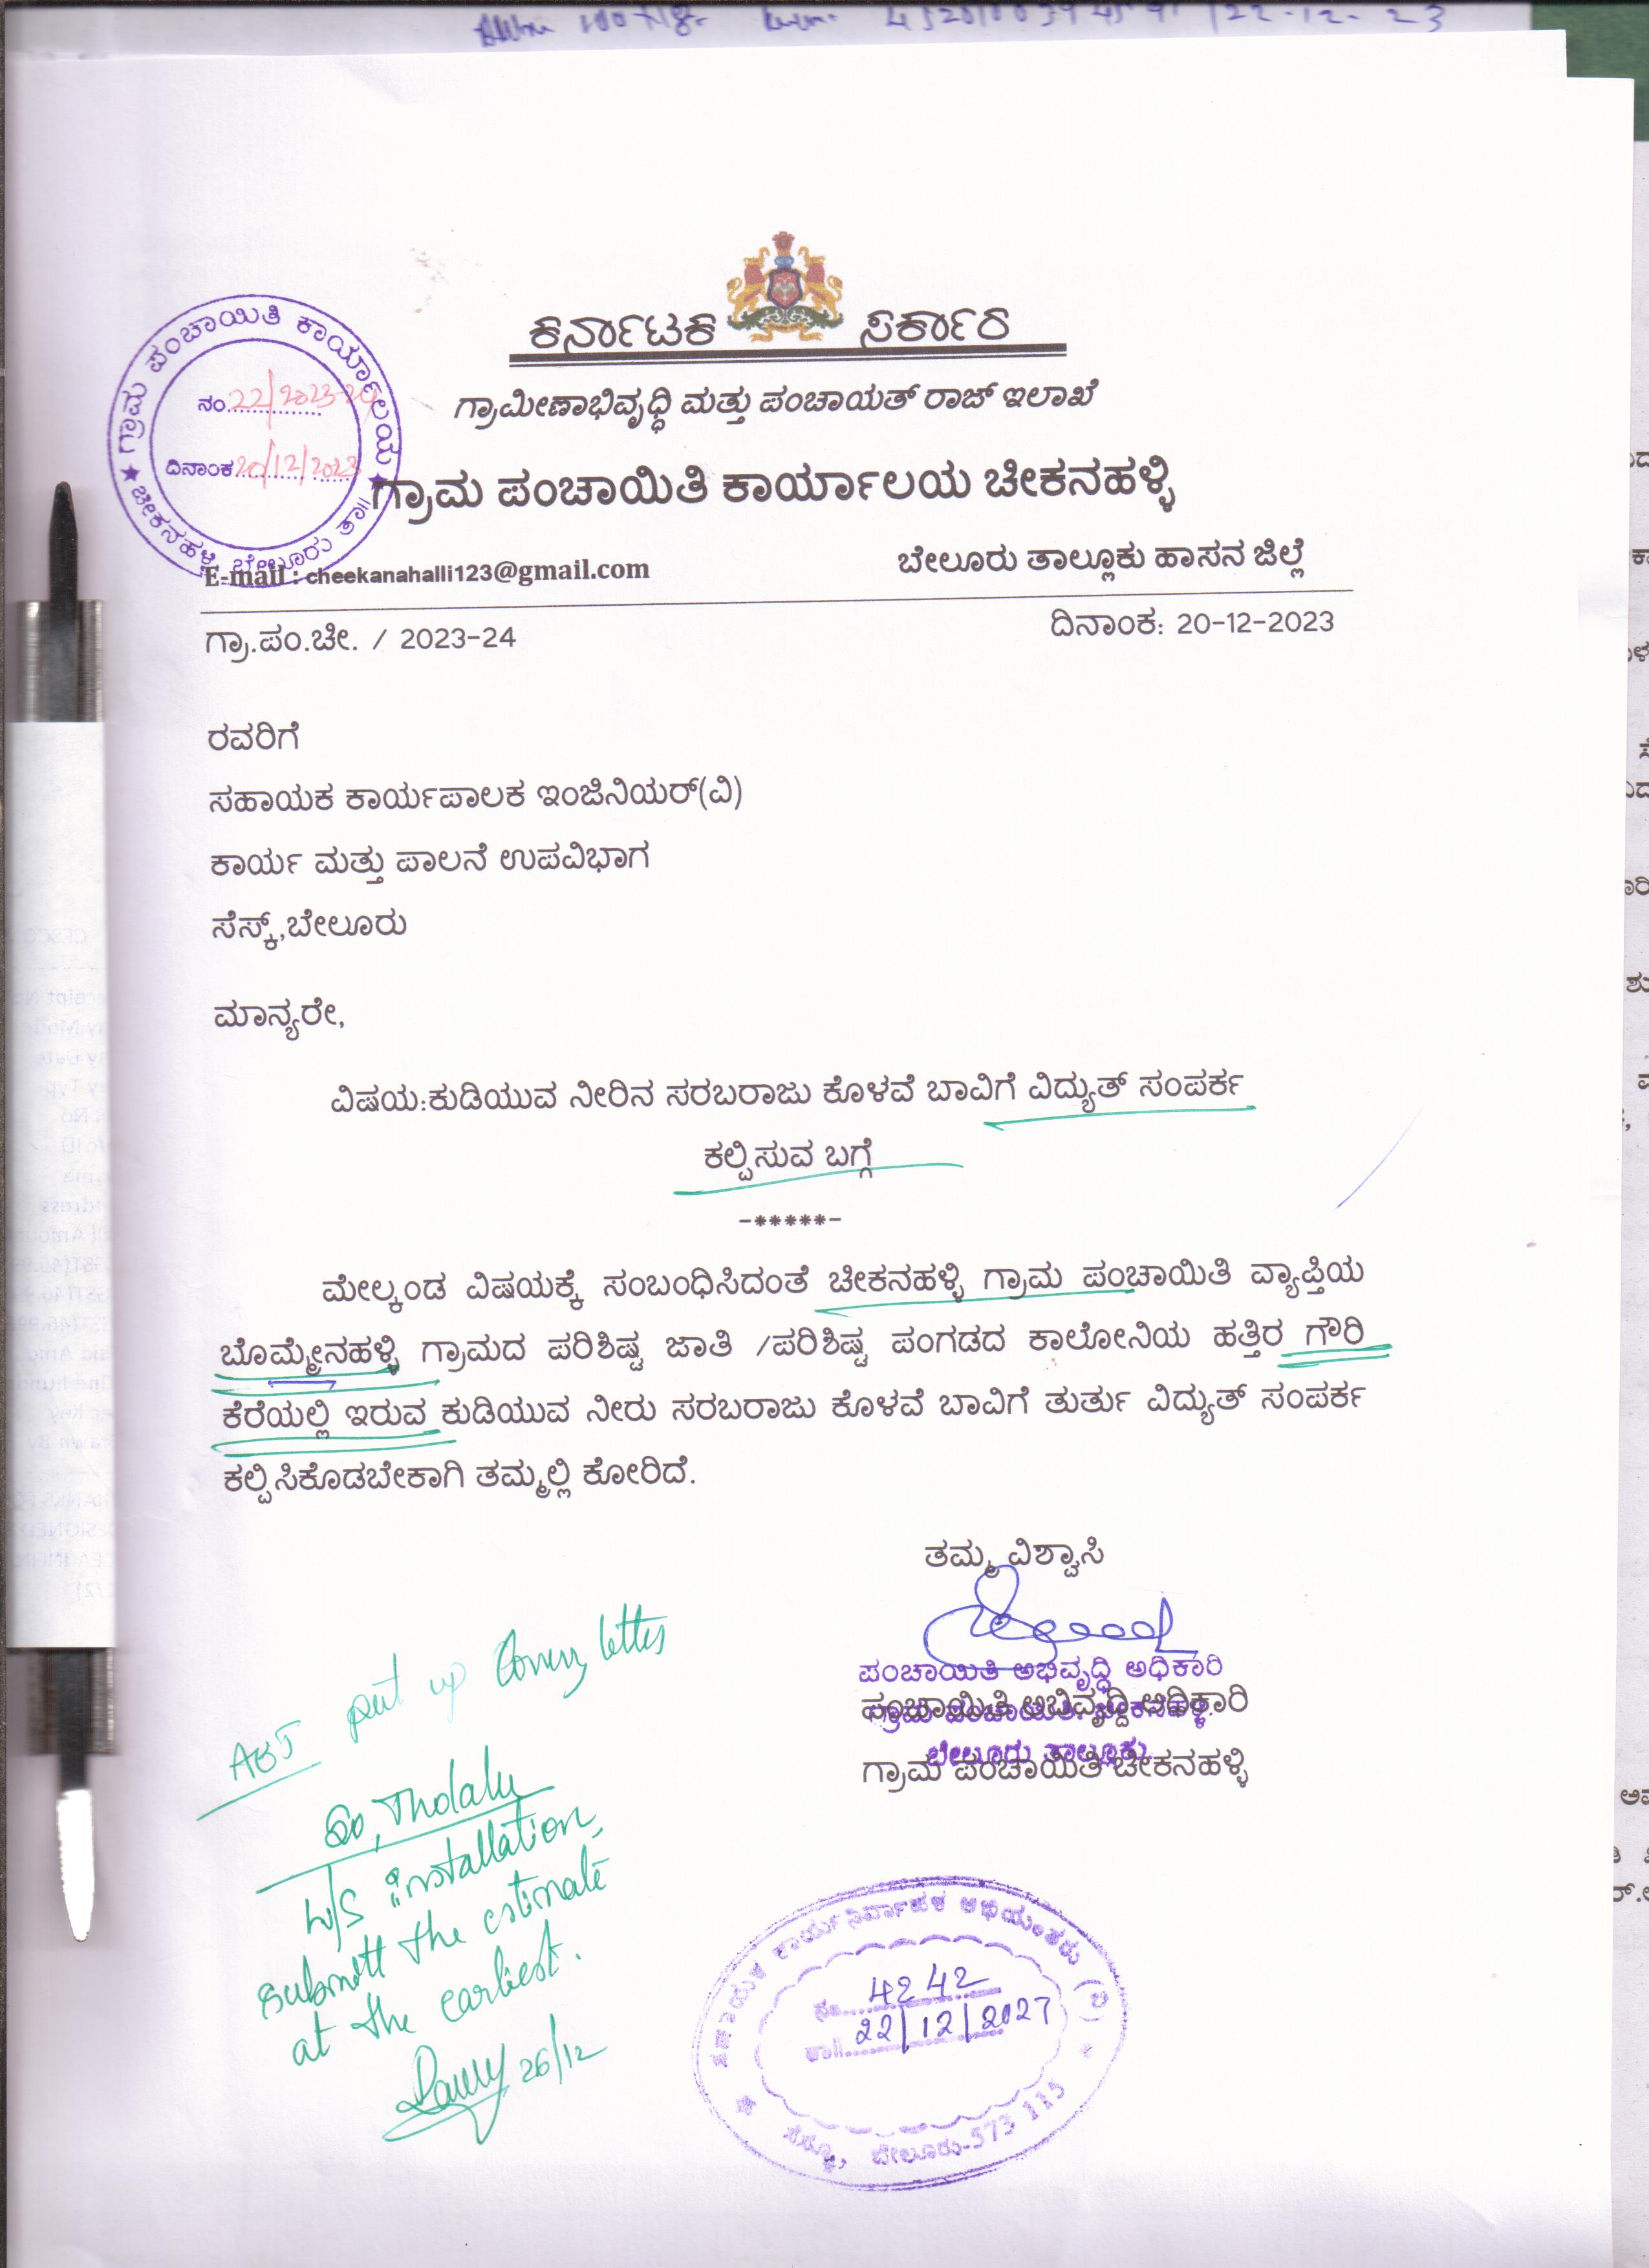 22-12-23
ಕರ್ನಾಟಕ ಸರ್ಕಾರ
ಗ್ರಾಮೀಣಾಭಿವೃದ್ಧಿ ಮತ್ತು ಪಂಚಾಯತ್ ರಾಜ್ ಇಲಾಖೆ
ಗ್ರಾಮ ಪಂಚಾಯಿತಿ ಕಾರ್ಯಾಲಯ
ನಂ. 22/2023-24
ದಿನಾಂಕ 20/12/2023
ಚೀಕನಹಳ್ಳಿ, ಬೇಲೂರು ತಾ||
ಗ್ರಾಮ ಪಂಚಾಯಿತಿ ಕಾರ್ಯಾಲಯ ಚೀಕನಹಳ್ಳಿ
E-mail : cheekanahalli123@gmail.com ಬೇಲೂರು ತಾಲ್ಲೂಕು ಹಾಸನ ಜಿಲ್ಲೆ
ಗ್ರಾ.ಪಂ.ಚೀ. / 2023-24 ದಿನಾಂಕ: 20-12-2023
ರವರಿಗೆ
ಸಹಾಯಕ ಕಾರ್ಯಪಾಲಕ ಇಂಜಿನಿಯರ್(ವಿ)
ಕಾರ್ಯ ಮತ್ತು ಪಾಲನೆ ಉಪವಿಭಾಗ
ಸೆಸ್ಕ್,ಬೇಲೂರು
ಮಾನ್ಯರೇ,
ವಿಷಯ:ಕುಡಿಯುವ ನೀರಿನ ಸರಬರಾಜು ಕೊಳವೆ ಬಾವಿಗೆ ವಿದ್ಯುತ್ ಸಂಪರ್ಕ
ಕಲ್ಪಿಸುವ ಬಗ್ಗೆ
-*****-
ಮೇಲ್ಕಂಡ ವಿಷಯಕ್ಕೆ ಸಂಬಂಧಿಸಿದಂತೆ ಚೀಕನಹಳ್ಳಿ ಗ್ರಾಮ ಪಂಚಾಯಿತಿ ವ್ಯಾಪ್ತಿಯ
ಬೊಮ್ಮೇನಹಳ್ಳಿ ಗ್ರಾಮದ ಪರಿಶಿಷ್ಟ ಜಾತಿ /ಪರಿಶಿಷ್ಟ ಪಂಗಡದ ಕಾಲೋನಿಯ ಹತ್ತಿರ ಗೌರಿ
ಕೆರೆಯಲ್ಲಿ ಇರುವ ಕುಡಿಯುವ ನೀರು ಸರಬರಾಜು ಕೊಳವೆ ಬಾವಿಗೆ ತುರ್ತು ವಿದ್ಯುತ್ ಸಂಪರ್ಕ
ಕಲ್ಪಿಸಿಕೊಡಬೇಕಾಗಿ ತಮ್ಮಲ್ಲಿ ಕೋರಿದೆ.
ತಮ್ಮ ವಿಶ್ವಾಸಿ
ಪಂಚಾಯಿತಿ ಅಭಿವೃದ್ಧಿ ಅಧಿಕಾರಿ
ಪಂಚಾಯಿತಿ ಅಭಿವೃದ್ದಿ ಅಧಿಕಾರಿ
ಗ್ರಾಮ ಪಂಚಾಯಿತಿ, ಚೀಕನಹಳ್ಳಿ
ಬೇಲೂರು ತಾಲ್ಲೂಕು.
ಗ್ರಾಮ ಪಂಚಾಯಿತಿ ಚೀಕನಹಳ್ಳಿ
put up letter
Tholalu
W/S installation,
submitt the estimate
at the earliest.
26/12
ಸಹಾಯಕ ಕಾರ್ಯನಿರ್ವಾಹಕ ಅಭಿಯಂತರು (ವಿ)
ನಂ. 4242
22/12/2027
ಸೆಸ್ಕ್, ಬೇಲೂರು-573 115